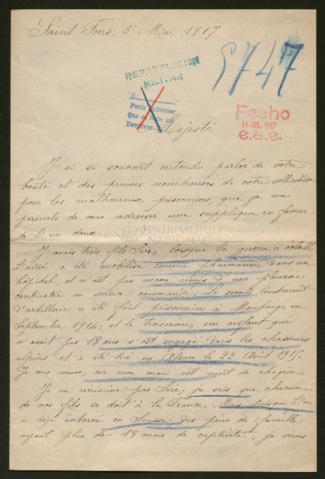 Saint Fons, 5 Mai 1917
REPATRIACIÓN
MILITAR
5747
Pedir informes
Fecho
JUL. 1917
e.a.e.
Majesté
J'ai si souvent entendu parler de votre
bonté et des preuves nombreuses de votre sollicitude
pour les malheureux prisonniers, que je me
permets de vous adresser une supplique en faveur
de l'un deux.
J'avais trois fils Sire, lorsque la guerre a éclaté
L'aîné a été mobilisé comme pharmacien dans un
hôpital, et n'est pas moins
contractée en service commandé. Le second lieutenant
d'artillerie a été fait prisonnier à Maubeuge en
Septembre 1914, et le troisième, un enfant qui
n'avait pas 18 ans s'est engagé dans les chasseurs
alpins et a été tué en Alsace le 22 Août 1915.
Je suis veuve, car mon mari est mort de chagrin.
Je ne récrimine pas Sire, je sais que chacun
de nos fils se doit à la France. Mais puisque l'on
a déjà interné en Suisse des pères de famille
ayant plus de 18 mois de captivité, je viens
PATRIMONIO